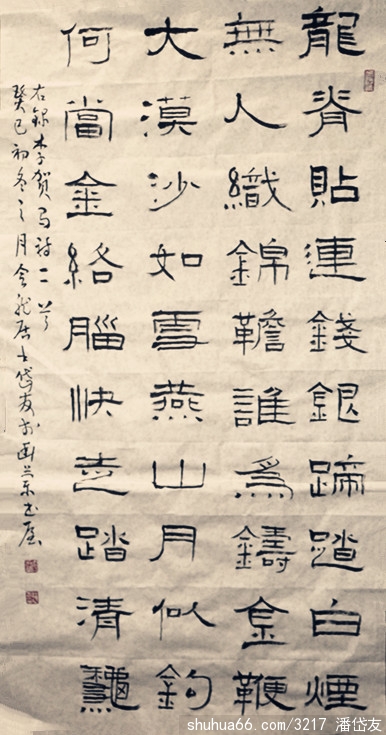 龍脊貼連錢銀蹄踏白煙
無人織錦韂誰爲鑄金鞭
大漠沙如雪燕山月似鉤
何當金絡腦快走踏清龝
右錄李賀馬詩二首
癸巳初冬之月居士岱友於画
shuhua66.com/3217 潘岱友